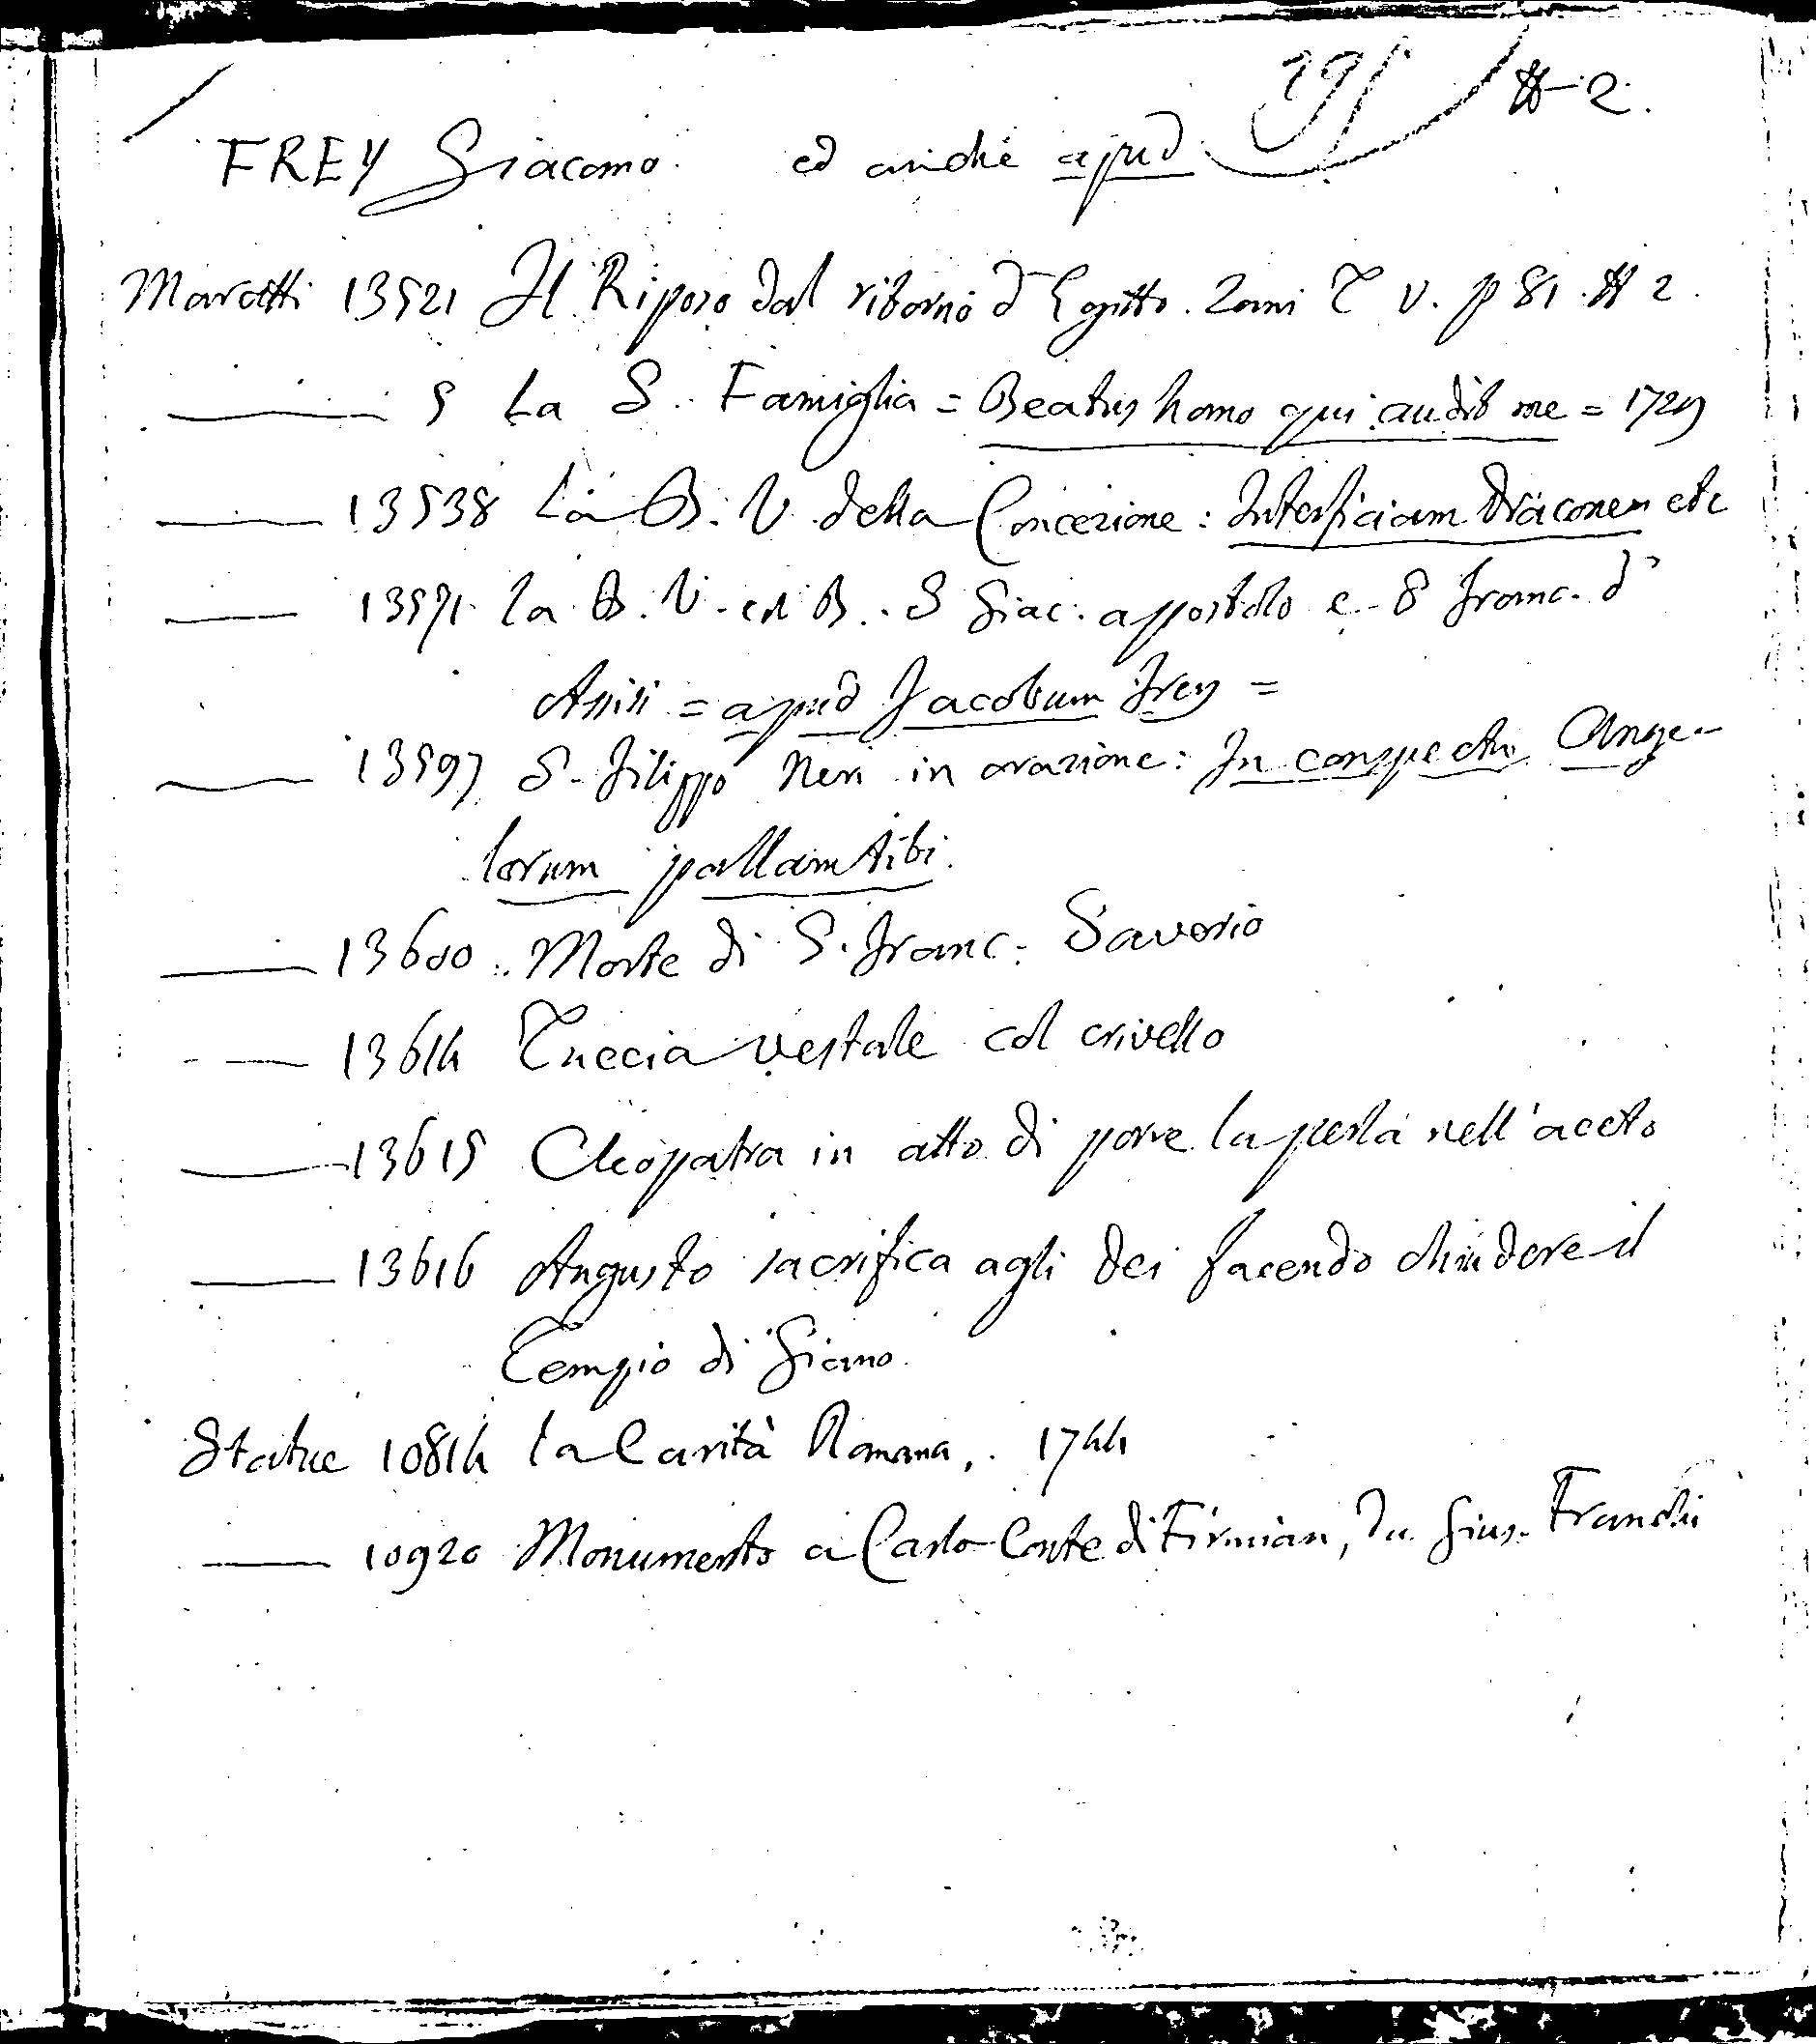 291 # 2.
FREY Giacomo. ed anche apud
Maratti 13521 Il Riposo dal ritorno d'Egitto. Zani T V. p 81. # 2.
5 La S. Famiglia = Beatus homo qui audit me = 1729
13538 La B. V. della Concezione: Interficiam Draconem etc
13571 La B. V. col B. S Giac. appostolo e S Franc. d'
Assisi = apud Jacobum Frey =
13597 S. Filippo Neri in orazione: In conspectu Ange-
lorum psallam tibi.
13600 Morte di S. Franc. Saverio
13614 Tuccia vestale col crivello
13615 Cleopatra in atto di porre la perla nell'aceto
13616 Augusto sacrifica agli Dei facendo chiudere il
Tempio di Giano.
Statue 10814 La Carità Romana, 1744
10920 Monumento a Carlo Conte di Firmian, Da Gius. Franchi